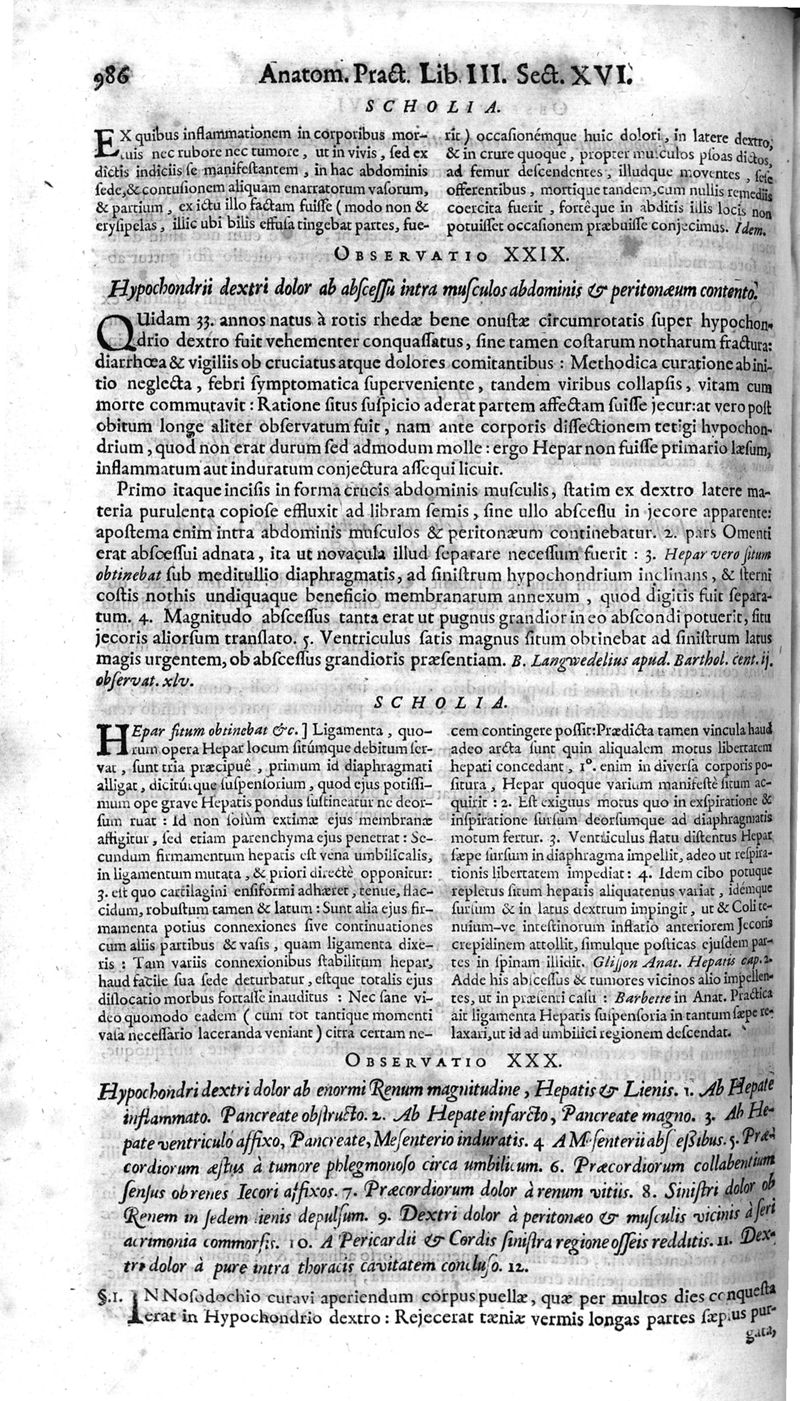 986 Anatom. Pract. Lib III. Sect. XVI.
SCHOLIA.
EX quibus inflammationem in corporibus mor-
tuis nec rubore nec tumore, ut in vivis, sed ex
dictis indiciis se manifestantem, in hac abdominis
sede, & contusionem aliquam enarratorum vasorum,
& partium, ex ictu illo factam fuisse (modo non &
erysipelas, illic ubi bilis effusa tingebat partes, fue-
rit) occasionémque huic dolori, in latere dextro,
& in crure quoque, propter musculos psoas dictos,
ad femur descendentes, illudque moventes, sese
offerentibus, mortique tandem, cum nullis remediis
coercita fuerit, fortéque in abditis illis locis non
potuisset occasionem præbuisse conjecimus. Idem.
OBSERVATIO XXIX.
Hypochondrii dextri dolor ab abscessu intra musculos abdominis & peritonæum contento.
QUidam 33. annos natus à rotis rhedæ bene onustæ circumrotatis super hypochon-
drio dextro fuit vehementer conquassatus, sine tamen costarum notharum fractura:
diarrhœa & vigiliis ob cruciatus atque dolores comitantibus: Methodica curatione ab ini-
tio neglecta, febri symptomatica superveniente, tandem viribus collapsis, vitam cum
morte commutavit: Ratione situs suspicio aderat partem affectam fuisse jecur: at vero post
obitum longe aliter observatum fuit, nam ante corporis dissectionem tetigi hypochon-
drium, quod non erat durum sed admodum molle: ergo Hepar non fuisse primario læsum,
inflammatum aut induratum conjectura assequi licuit.
Primo itaque incisis in forma crucis abdominis musculis, statim ex dextro latere ma-
teria purulenta copiose effluxit ad libram semis, sine ullo abscessu in jecore apparente:
apostema enim intra abdominis musculos & peritonæum continebatur. 2. pars Omenti
erat abscessui adnata, ita ut novacula illud separare necessum fuerit: 3. Hepar vero situm
obtinebat sub meditullio diaphragmatis, ad sinistrum hypochondrium inclinans, & sterni
costis nothis undiquaque beneficio membranarum annexum, quod digitis fuit separa-
tum. 4. Magnitudo abscessus tanta erat ut pugnus grandior in eo abscondi potuerit, situ
jecoris aliorsum translato. 5. Ventriculus satis magnus situm obtinebat ad sinistrum latus
magis urgentem, ob abscessus grandioris præsentiam. B. Langwedelius apud. Barthol. cent. ij.
observat. xlv.
SCHOLIA.
HEpar situm obtinebat &c.] Ligamenta, quo-
rum opera Hepar locum sitúmque debitum ser-
vat, sunt tria præcipuê, primum id diaphragmati
alligat, diciturque suspensorium, quod ejus potissi-
mum ope grave Hepatis pondus sustineatur ne deor-
sum ruat: Id non solùm extimæ ejus membranæ
affigitur, sed etiam parenchyma ejus penetrat: Se-
cundum firmamentum hepatis est vena umbilicalis,
in ligamentum mutata, & priori directè opponitur:
3. est quo cartilagini ensiformi adhæret, tenue, flac-
cidum, robustum tamen & latum: Sunt alia ejus fir-
mamenta potius connexiones sive continuationes
cum aliis partibus & vasis, quam ligamenta dixe-
ris: Tam variis connexionibus stabilitum hepar,
haud facile sua sede deturbatur, estque totalis ejus
dislocatio morbus fortasse inauditus: Nec sane vi-
deo quomodo eadem (cum tot tantique momenti
vasa necessario laceranda veniant) citra certam ne-
cem contingere possit: Prædicta tamen vincula haud
adeo arcta sunt quin aliqualem motus libertatem
hepati concedant, 1°. enim in diversa corporis po-
situra, Hepar quoque varium manifestè situm ac-
quirit: 2. Est exiguus motus quo in exspiratione &
inspiratione sursum deorsumque ad diaphragmatis
motum fertur. 3. Ventriculus flatu distentus Hepar
sæpe sursum in diaphragma impellit, adeo ut respira-
tionis libertatem impediat: 4. Idem cibo potuque
repletus situm hepatis aliquatenus variat, idémque
sursum & in latus dextrum impingit, ut & Coli te-
nuium-ve intestinorum inflatio anteriorem Jecoris
crepidinem attollit, simulque posticas ejusdem par-
tes in spinam illidit. Glisson Anat. Hepatis cap. 2.
Adde his abscessus & tumores vicinos alio impellen-
tes, ut in præsenti casu: Barbette in Anat. Practica
ait ligamenta Hepatis suspensoria in tantum sæpe re-
laxari, ut id ad umbilici regionem descendat.
OBSERVATIO XXX.
Hypochondri dextri dolor ab enormi Renum magnitudine, Hepatis & Lienis. 1. Ab Hepate
inflammato. Pancreate obstructo. 2. Ab Hepate infarcto, Pancreate magno. 3. Ab He-
pate ventriculo affixo, Pancreate, Mesenterio induratis. 4 A Mesenterii abscessibus. 5. Præ-
cordiorum æstus à tumore phlegmonoso circa umbilicum. 6. Præcordiorum collabentium
sensus ob renes Iecori affixos. 7. Præcordiorum dolor à renum vitiis. 8. Sinistri dolor ob
Renem in sedem lienis depulsum. 9. Dextri dolor à peritonæo & musculis vicinis à seri
acrimonia commorsis. 10. A Pericardii & Cordis sinistra regione osseis redditis. 11. Dex-
tri dolor à pure intra thoracis cavitatem concluso. 12.
§.1. IN Nosodochio curavi aperiendum corpus puellæ, quæ per multos dies conquesta
erat in Hypochondrio dextro: Rejecerat tæniæ vermis longas partes sæpius pur-
gata,